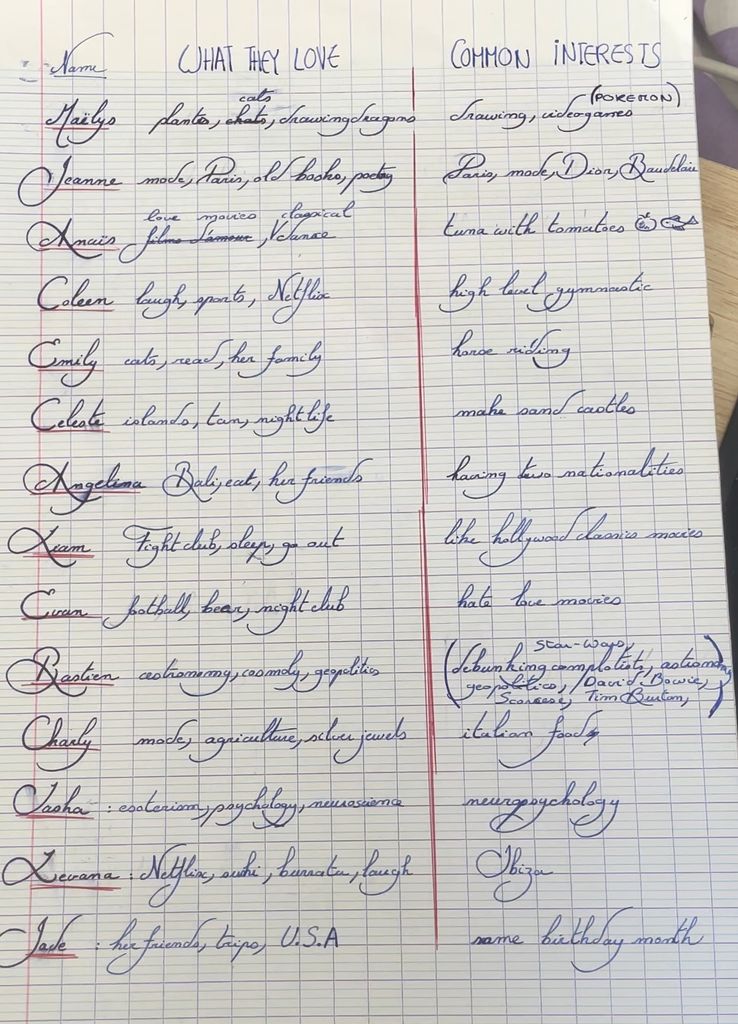 Name WHAT THEY LOVE COMMON INTERESTS
cats (POKEMON)
Maëlys plants, chats, drawing dragons drawing, videogames
Jeanne mode, Paris, old books, poetry Paris, mode, Dior, Baudelair
love movies classical
Anaïs films d'amour, V dance tuna with tomatoes
Coleen laugh, sports, Netflix high level gymnastic
Emily cats, read, her family horse riding
Celeste islands, tan, night life make sand castles
Angelina Bali, eat, her friends having two nationalities
Liam Fight club, sleep, go out like hollywood classics movies
Evan football, beer, night club hate love movies
Star-Wars,
Bastien astronomy, cosmoly, geopolitics (debunking complotists, astronomy,
geopolitics, David Bowie,
Scorsese, Tim Burton,)
Charly mode, agriculture, silver jewels italian food
Sasha : esoterism, psychology, neuroscience neuropsychology
Levana : Netflix, sushi, burrata, laugh Ibiza
Jade : her friends, trips, U.S.A same birthday month